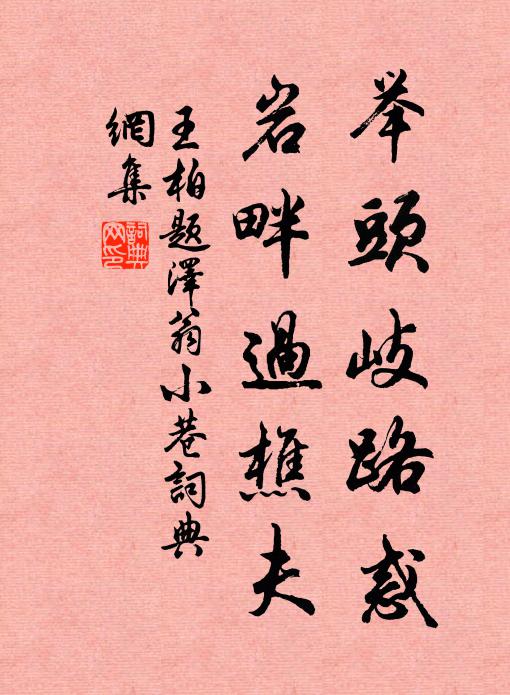 举頭岐路惑
岩畔過樵夫
王柏題澤翁小卷詞典
網集
詞典
网印